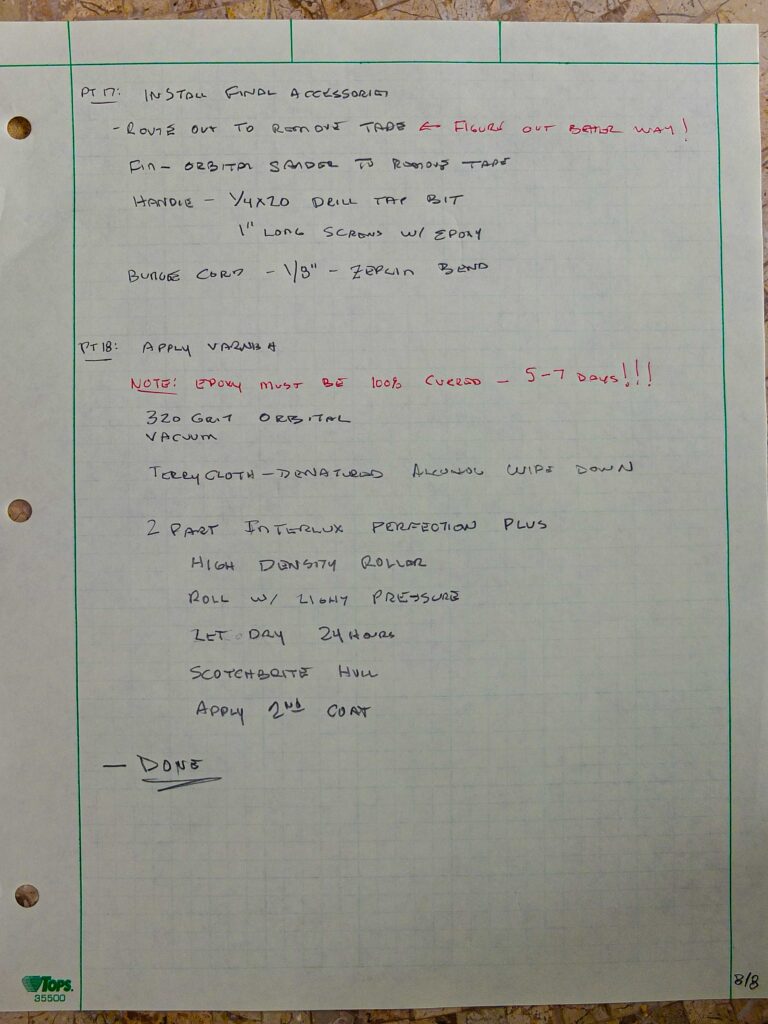 PT 17: INSTALL FINAL ACCESSORIES
- ROUTE OUT TO REMOVE TAPE ← FIGURE OUT BETTER WAY!
FIN - ORBITAL SANDER TO REMOVE TAPE
HANDLE - 1/4x20 DRILL TAP BIT
1" LONG SCREWS W/ EPOXY
BUNGE CORD - 1/8" - ZEPLIN BEND
PT 18: APPLY VARNISH
NOTE: EPOXY MUST BE 100% CURRED - 5-7 DAYS!!!
320 GRIT ORBITAL
VACUUM
TERRY CLOTH - DENATURED ALCOHOL WIPE DOWN
2 PART INTERLUX PERFECTION PLUS
HIGH DENSITY ROLLER
ROLL W/ LIGHT PRESSURE
LET DRY 24 HOURS
SCOTCHBRITE HULL
APPLY 2ND COAT
- DONE
TOPS.
35500
8/8